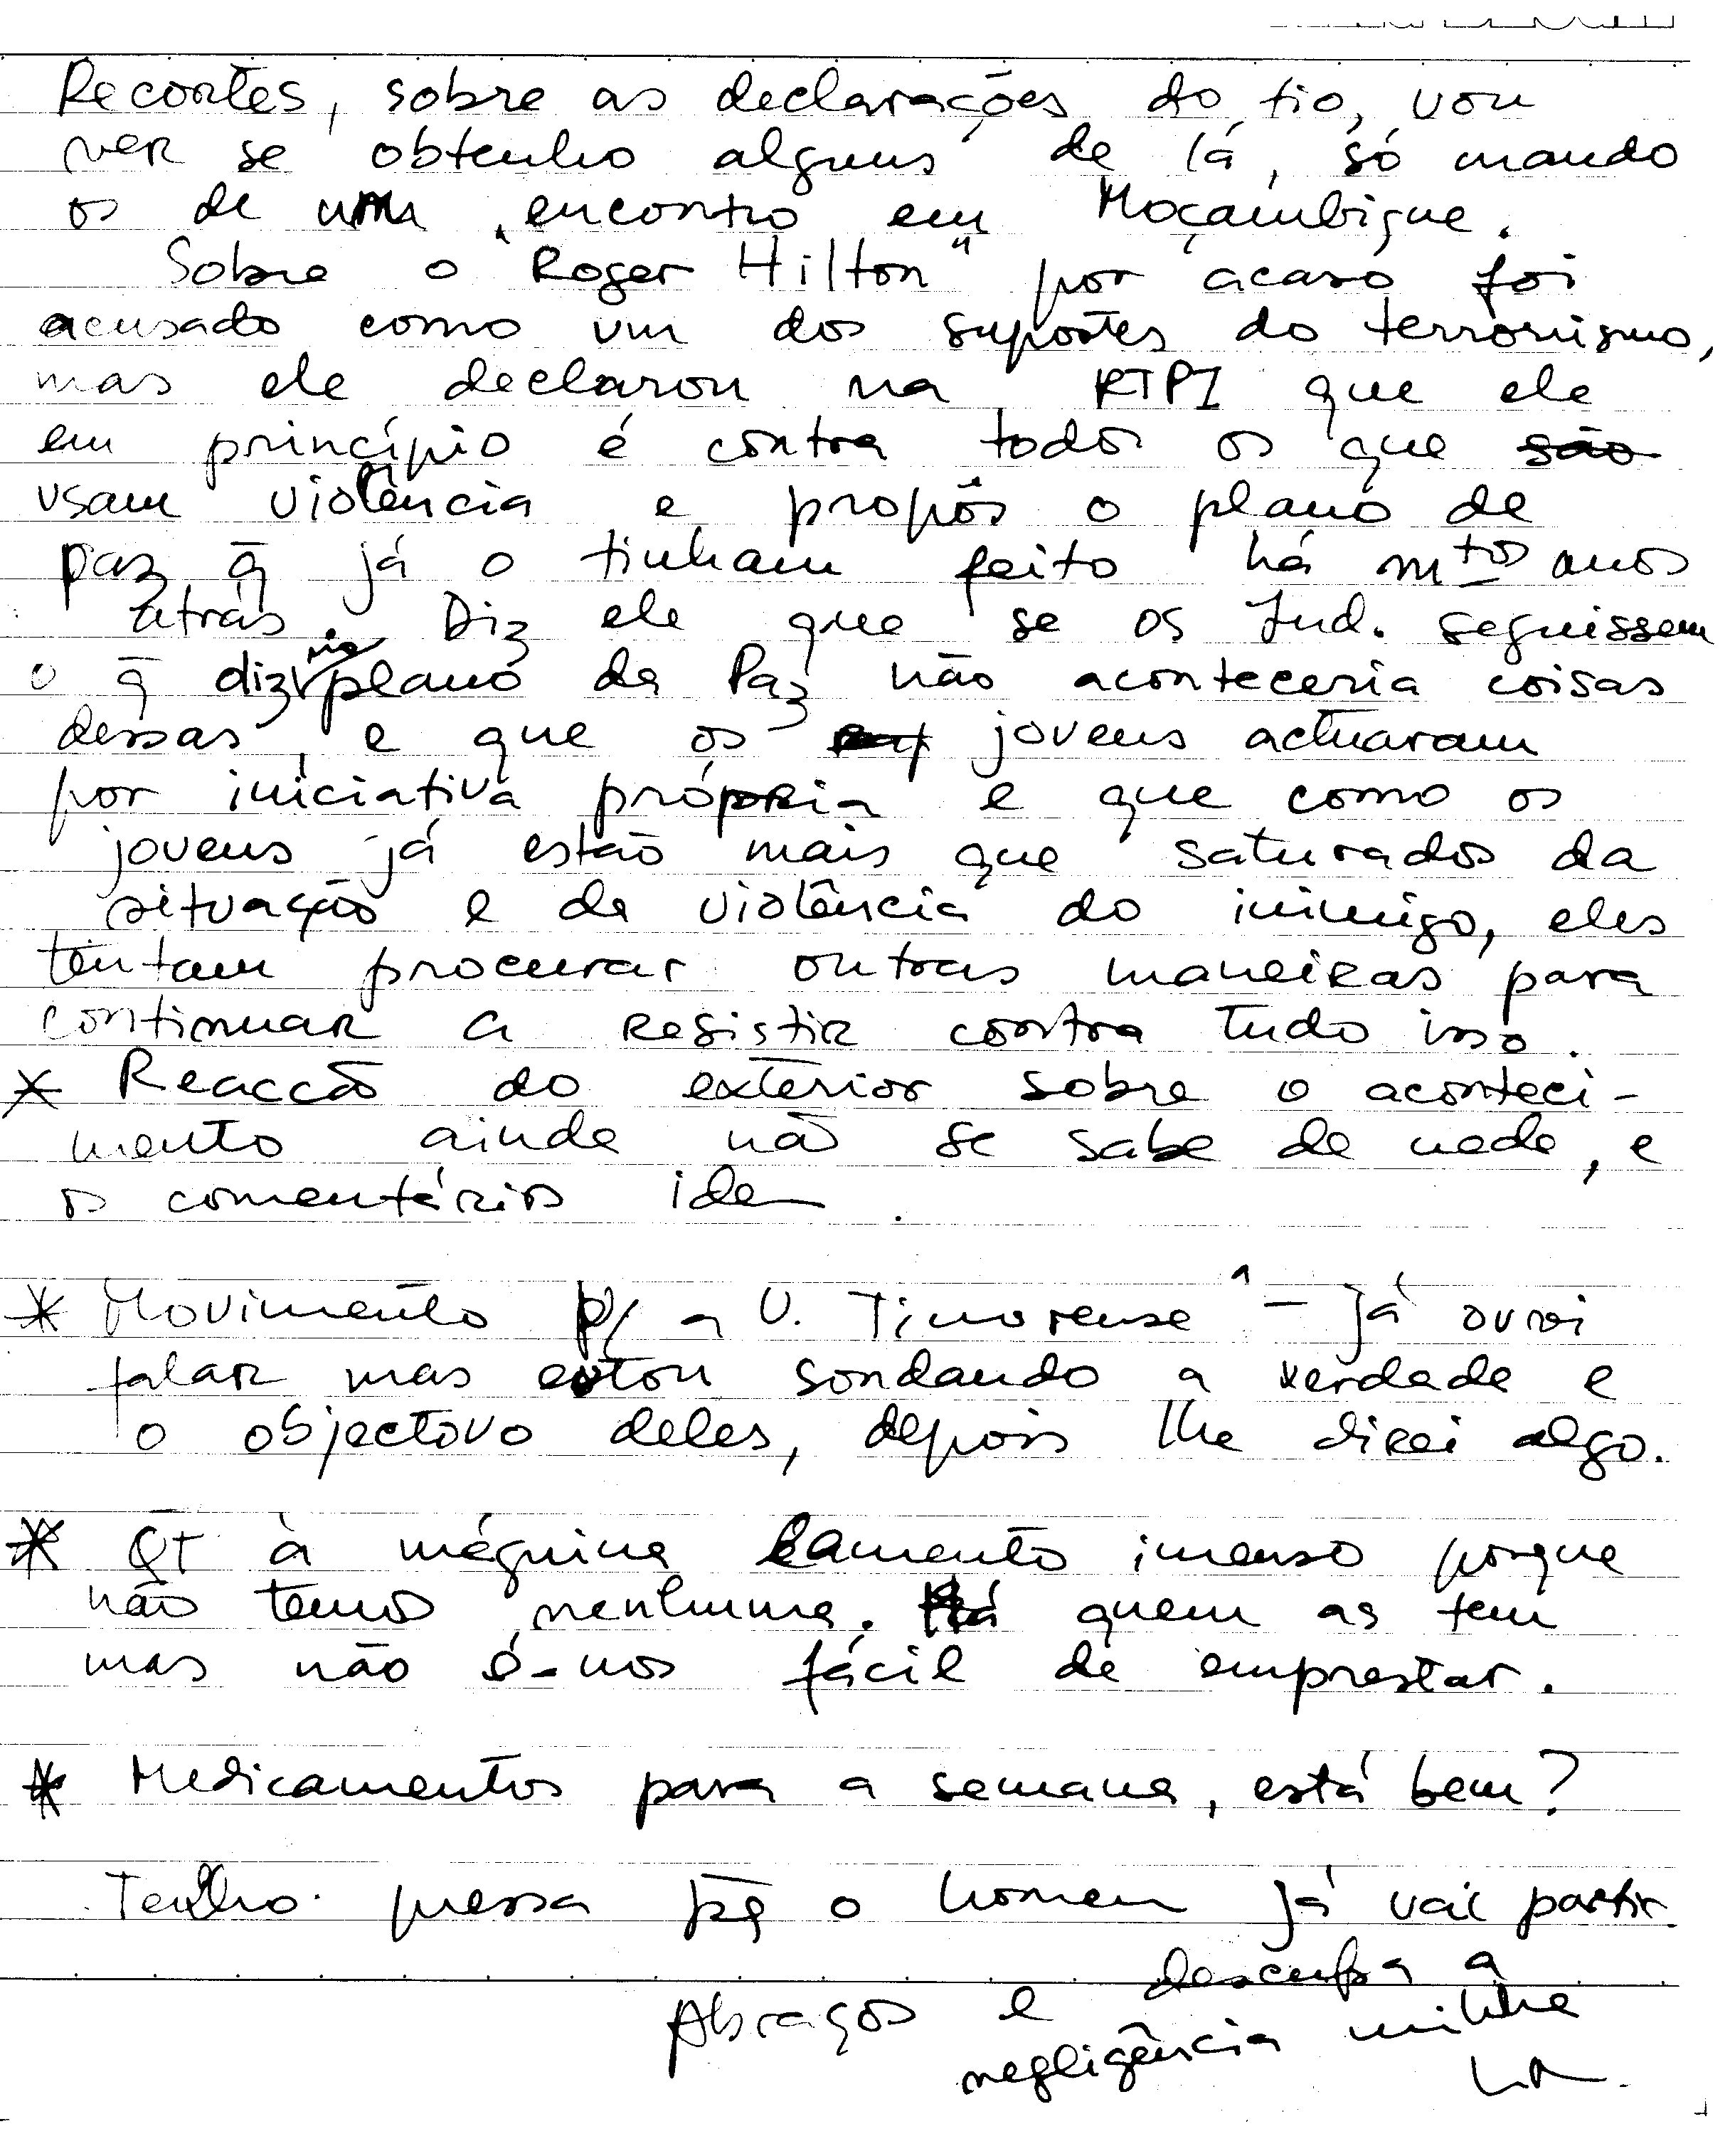 Recortes, sobre as declarações do tio, vou
ver se obtenho alguns de lá, só mando
os de um encontro em Moçambique.
Sobre o "Roger Hilton" por acaso foi
acusado como um dos suportes do terrorismo,
mas ele declarou na RTPI que ele
em princípio é contra todos os que são
usam violência e propôs o plano de
paz q̄ já o tinham feito há mtos anos
atrás. Diz ele que se os Ind. seguissem
o q̄ diz no plano da Paz não aconteceria coisas
dessas, e que os jovens actuaram
por iniciativa própria e que como os
jovens já estão mais que saturados da
situação e da violência do inimigo, eles
tentam procurar outras maneiras para
continuar a resistir contra tudo isso.
* Reacção do exterior sobre o aconteci-
mento ainda não se sabe de nada, e
os comentários idem.
* Movimento p/ a U. Timorense" - Já ouvi
falar mas estou sondando a verdade e
o objectovo deles, depois lhe direi algo.
* QT à máquina lamento imenso porque
não temos nenhuma. Há quem as tem
mas não é-nos fácil de emprestar.
* Medicamentos para a semana, está bem?
Tenho pressa pq̄ o homem já vai partir.
Abraços e desculpa a
negligência minha